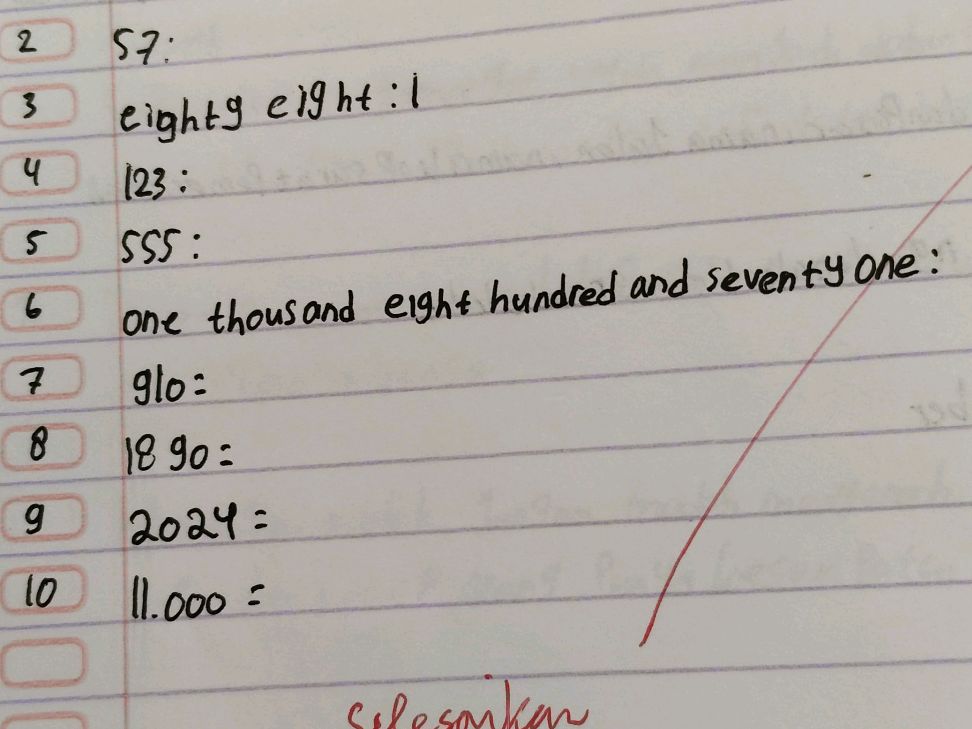 2 57:
3 eighty eight : 1
4 123 :
5 555 :
6 one thousand eight hundred and seventy one :
7 910 =
8 18 90 =
9 2024 =
10 11.000 =
selesaikan